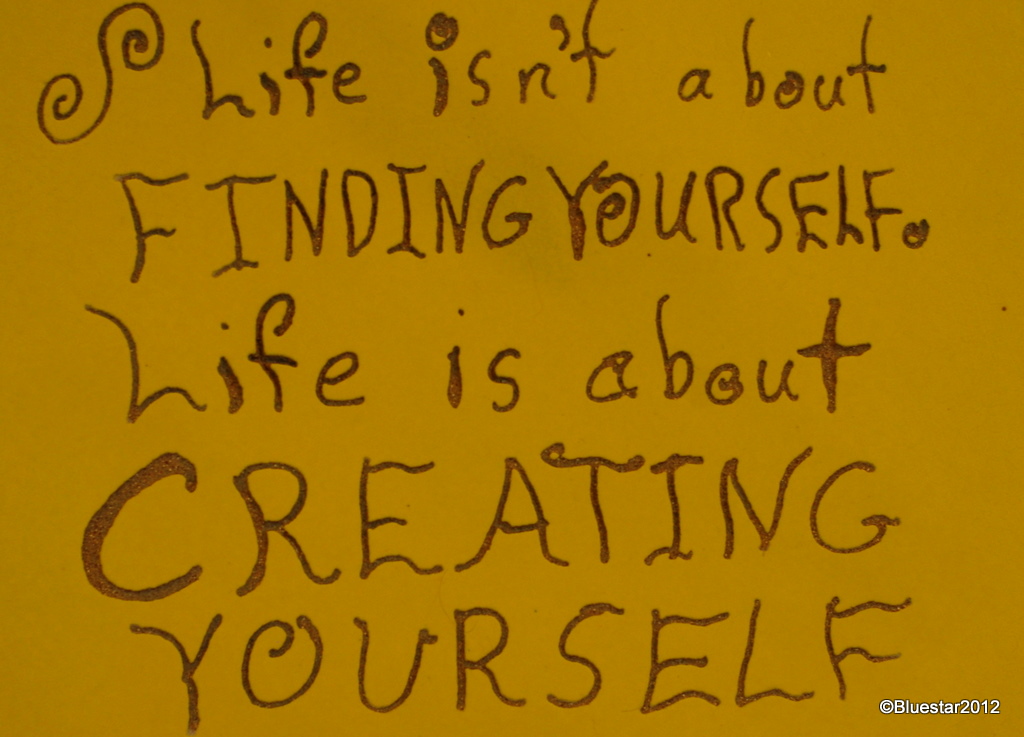 Life isn't about
FINDING YOURSELF.
Life is about
CREATING
YOURSELF
©Bluestar2012